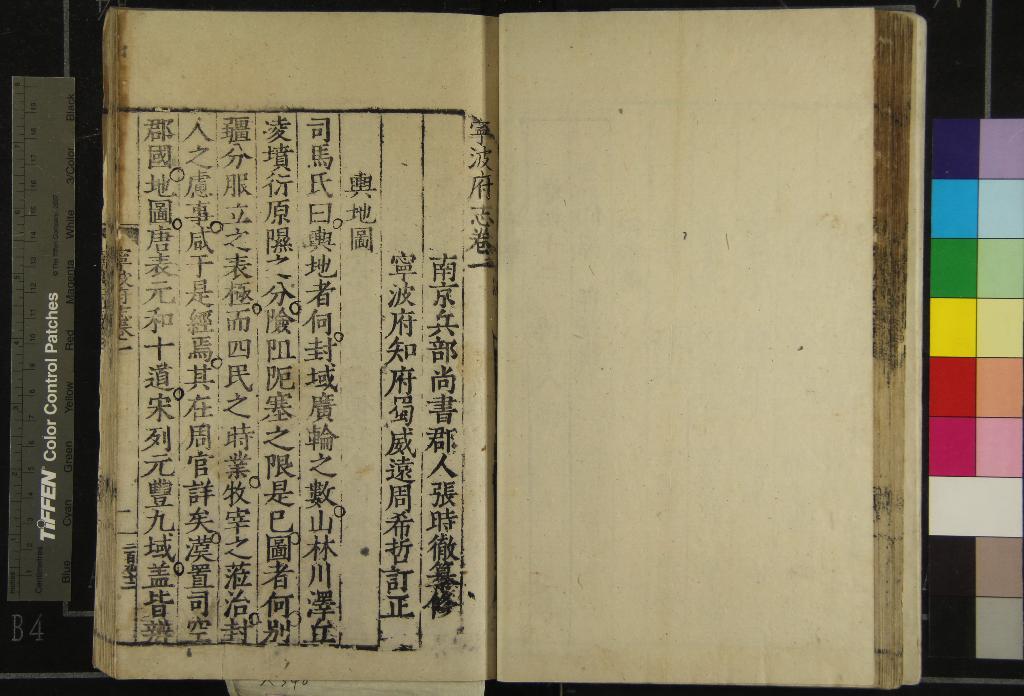 寧波府志卷一
南京兵部尚書郡人張時徹纂修
寧波府知府蜀威遠周希哲訂正
輿地圖
司馬氏曰輿地者何封域廣輪之數山林川澤丘
凌墳衍原隰之分險阻阨塞之限是巳圖者何別
疆分服立之表極而四民之時業牧宰之蒞治封
人之慮事咸于是經焉其在周官詳矣漢置司空
郡國地圖唐表元和十道宋列元豐九域盖皆辨
寧波府志卷一
TIFFEN Color Control Patches
Blue Cyan Green Yellow Red Magenta White 3/Color Black
Centimetres
B4